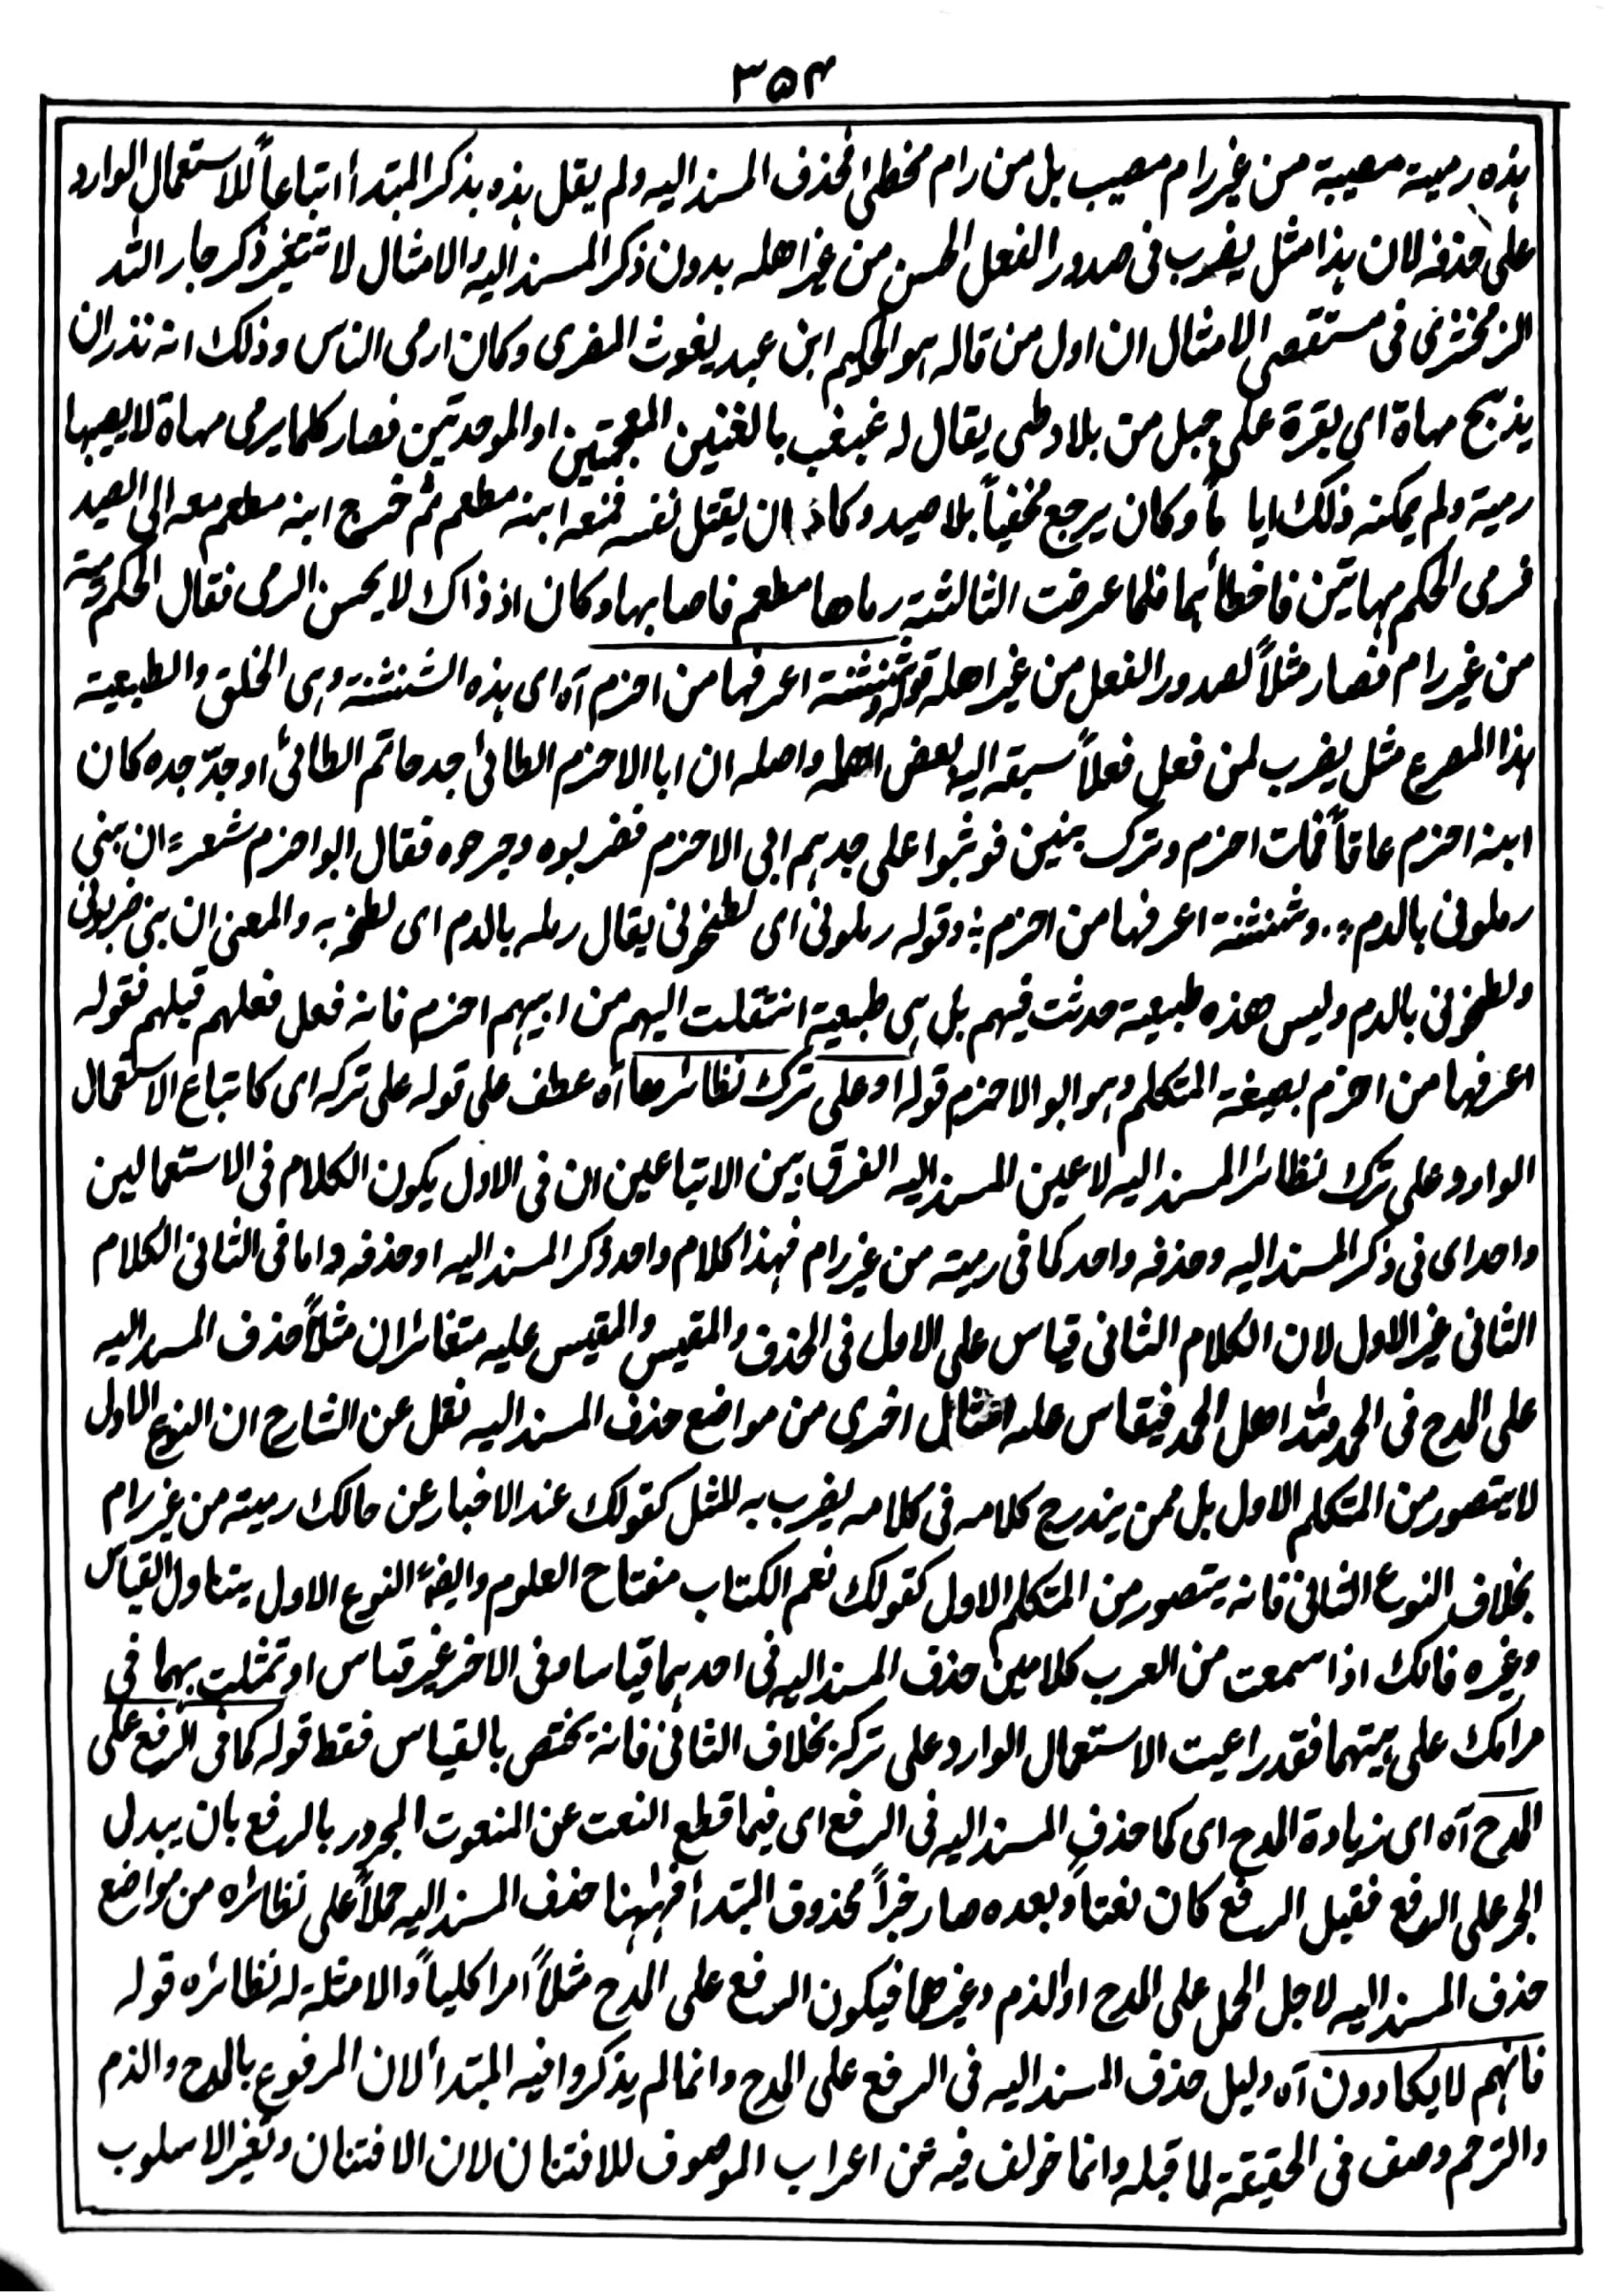 ٣٥٤
هذه رمية مصيبة من غير رام مصيب بل من رام مخطئ فحذف المسند اليه ولم يقل هذه بذكر المبتدأ اتباعاً للاستعمال الوارد
على حذفه لان هذا مثل يضرب فى صدور الفعل الحسن من غير اهله بدون ذكر المسند اليه والامثال لا تتغير ذكر جار الله
الزمخشرى فى مستقصى الامثال ان اول من قاله هو الحكيم ابن عبد يغوث المنقرى وكان ارمى الناس وذلك انه نذر ان
يذبح مهاة اى بقرة على جبل من بلاد طى يقال له غبغب بالغينين المعجمتين او الموحدتين فصار كلما يرمى مهاة لا يصيبها
رمية ولم يمكنه ذلك ايا ماً وكان يرجع مخفياً بلا صيد وكاد ان يقتل نفسه فمنعه ابنه مطعم ثم خرج ابنه مطعم معه الى الصيد
فرمى الحكم مهاتين فاخطأهما فلما عرضت الثالثة رماها مطعم فاصابها وكان اذ ذاك لا يحسن الرمى فقال الحكم رمية
من غير رام فصار مثلاً لصدور الفعل من غير اهله قوله وشنشنة اعرفها من اخزم آه اى هذه الشنشنة وهى الخلق والطبيعية
هذا المصرع مثل يضرب لمن فعل فعلاً سبقه اليه بعض اهله واصله ان ابا الاخزم الطائى جد حاتم الطائى او جدّ جده كان
ابنه اخزم عاقاً فمات اخزم وترك بنين فوثبوا على جدهم ابى الاخزم فضربوه وجرحوه فقال ابو اخزم شعر؞ ان بنى
رملونى بالدم ؞ وشنشنة اعرفها من اخزم ؞ وقوله رملونى اى لطخونى يقال رمله بالدم اى لطخه به والمعنى ان بنى ضربونى
ولطخونى بالدم وليس هذه طبيعية حدثت فيهم بل هى طبيعية انتقلت اليهم من ابيهم اخزم فانه فعل فعلهم قبلهم فقوله
اعرفها من اخزم بصيغة المتكلم وهو ابو الاخزم قوله او على ترك نظائرها آه عطف على قوله على تركه اى كاتباع الاستعمال
الوارد على ترك نظائر المسند اليه لا عين المسند اليه الفرق بين الاتباعين ان فى الاول يكون الكلام فى الاستعمالين
واحدا اى فى ذكر المسند اليه وحذفه واحد كما فى رمية من غير رام فهذا كلام واحد ذكر المسند اليه او حذفه واما فى الثانى الكلام
الثانى غير الاول لان الكلام الثانى قياس على الاول فى الحذف والمقيس والمقيس عليه متغائران مثلاً حذف المسند اليه
على المدح فى الحمد لله اهل الحمد فيقاس عليه اخرى من مواضع حذف المسند اليه نقل عن الشارح ان النوع الاول
لا يتصور من المتكلم الاول بل ممن يندرج كلامه فى كلامه يضرب به المثل كقولك عند الاخبار عن حالك رمية من غير رام
بخلاف النوع الثانى فانه يتصور من المتكلم الاول كقولك نعم الكتاب مفتاح العلوم وايضاً النوع الاول يتناول القياس
وغيره فانك اذا سمعت من العرب كلامين حذف المسند اليه فى احدهما قياسا وفى الاخر غير قياس او تمثلت بهما فى
مرامك على هيئتهما فقد راعيت الاستعمال الوارد على تركه بخلاف الثانى فانه يختص بالقياس فقط قوله كما فى الرفع على
المدح آه اى زيادة المدح اى كما حذف المسند اليه فى الرفع اى فيما قطع النعت عن المنعوت المجرور بالرفع بان يبدل
الجر على الرفع فقبل الرفع كان نعتاً وبعده صار خبراً محذوف المبتدأ فههنا حذف المسند اليه حملاً على نظائره من مواضع
حذف المسند اليه لاجل الحمل على المدح او الذم وغيرهما فيكون الرفع على المدح مثلاً امرا كلياً والامثلة له نظائره قوله
فانهم لا يكادون آه دليل حذف المسند اليه فى الرفع على المدح وانما لم يذكروا فيه المبتدأ لان المرفوع بالمدح والذم
والترحم وصف فى الحقيقة لما قبله وانما خولف فيه عن اعراب الموصوف للافتنان لان الافتنان وتغير الاسلوب